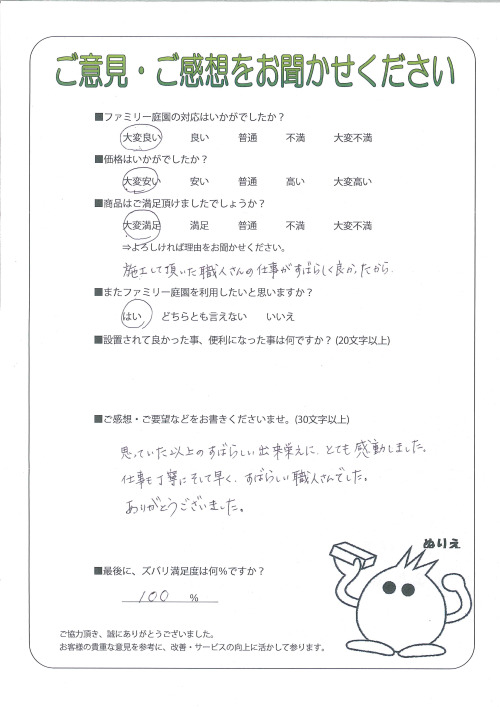 ご意見・ご感想をお聞かせください
■ファミリー庭園の対応はいかがでしたか？
大変良い 良い 普通 不満 大変不満
■価格はいかがでしたか？
大変安い 安い 普通 高い 大変高い
■商品はご満足頂けましたでしょうか？
大変満足 満足 普通 不満 大変不満
⇒よろしければ理由をお聞かせください。
施工して頂いた職人さんの仕事がすばらしく良かったから.
■またファミリー庭園を利用したいと思いますか？
はい どちらとも言えない いいえ
■設置されて良かった事、便利になった事は何ですか？(20文字以上)
■ご感想・ご要望などをお書きくださいませ。(30文字以上)
思っていた以上のすばらしい出来栄えに、とても感動しました。
仕事も丁寧にそして早く、すばらしい職人さんでした。
ありがとうございました。
ぬりえ
■最後に、ズバリ満足度は何%ですか？
100 %
ご協力頂き、誠にありがとうございました。
お客様の貴重な意見を参考に、改善・サービスの向上に活かして参ります。